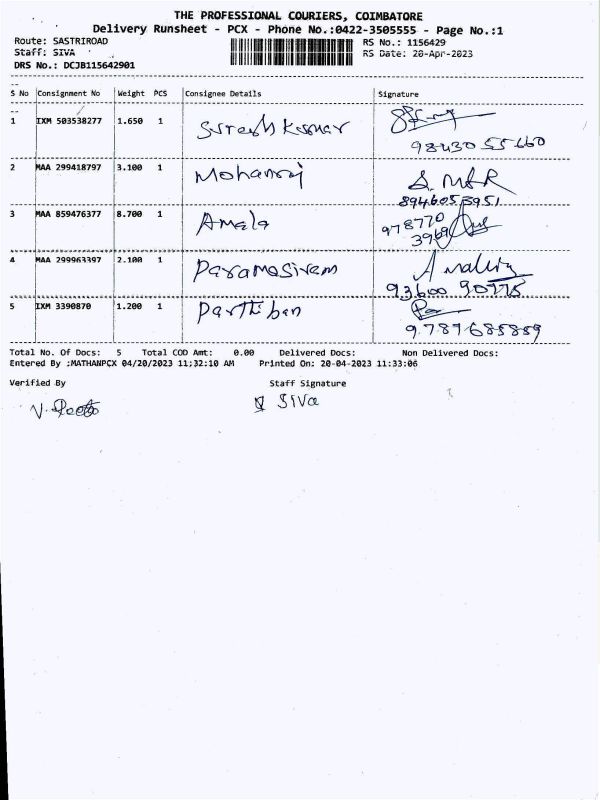 THE PROFESSIONAL COURIERS, COIMBATORE
Delivery Runsheet - PCX - Phone No.:0422-3505555 - Page No.:1
Route: SASTRIROAD RS No.: 1156429
Staff: SIVA RS Date: 20-Apr-2023
DRS No.: DCJB115642901
S No Consignment No Weight PCS Consignee Details Signature
1 IXM 503538277 1.650 1 Suresh Kumar
98430 55660
2 MAA 299418797 3.100 1 Mohanraj
8946055951
3 MAA 859476377 8.700 1 Amala 978770
3969
4 MAA 299963397 2.100 1 Paramasivam
93600 90775
5 IXM 3390870 1.200 1 Parthiban
9787685859
Total No. Of Docs: 5 Total COD Amt: 0.00 Delivered Docs: Non Delivered Docs:
Entered By :MATHANPCX 04/20/2023 11:32:10 AM Printed On: 20-04-2023 11:33:06
Verified By Staff Signature
SIVa